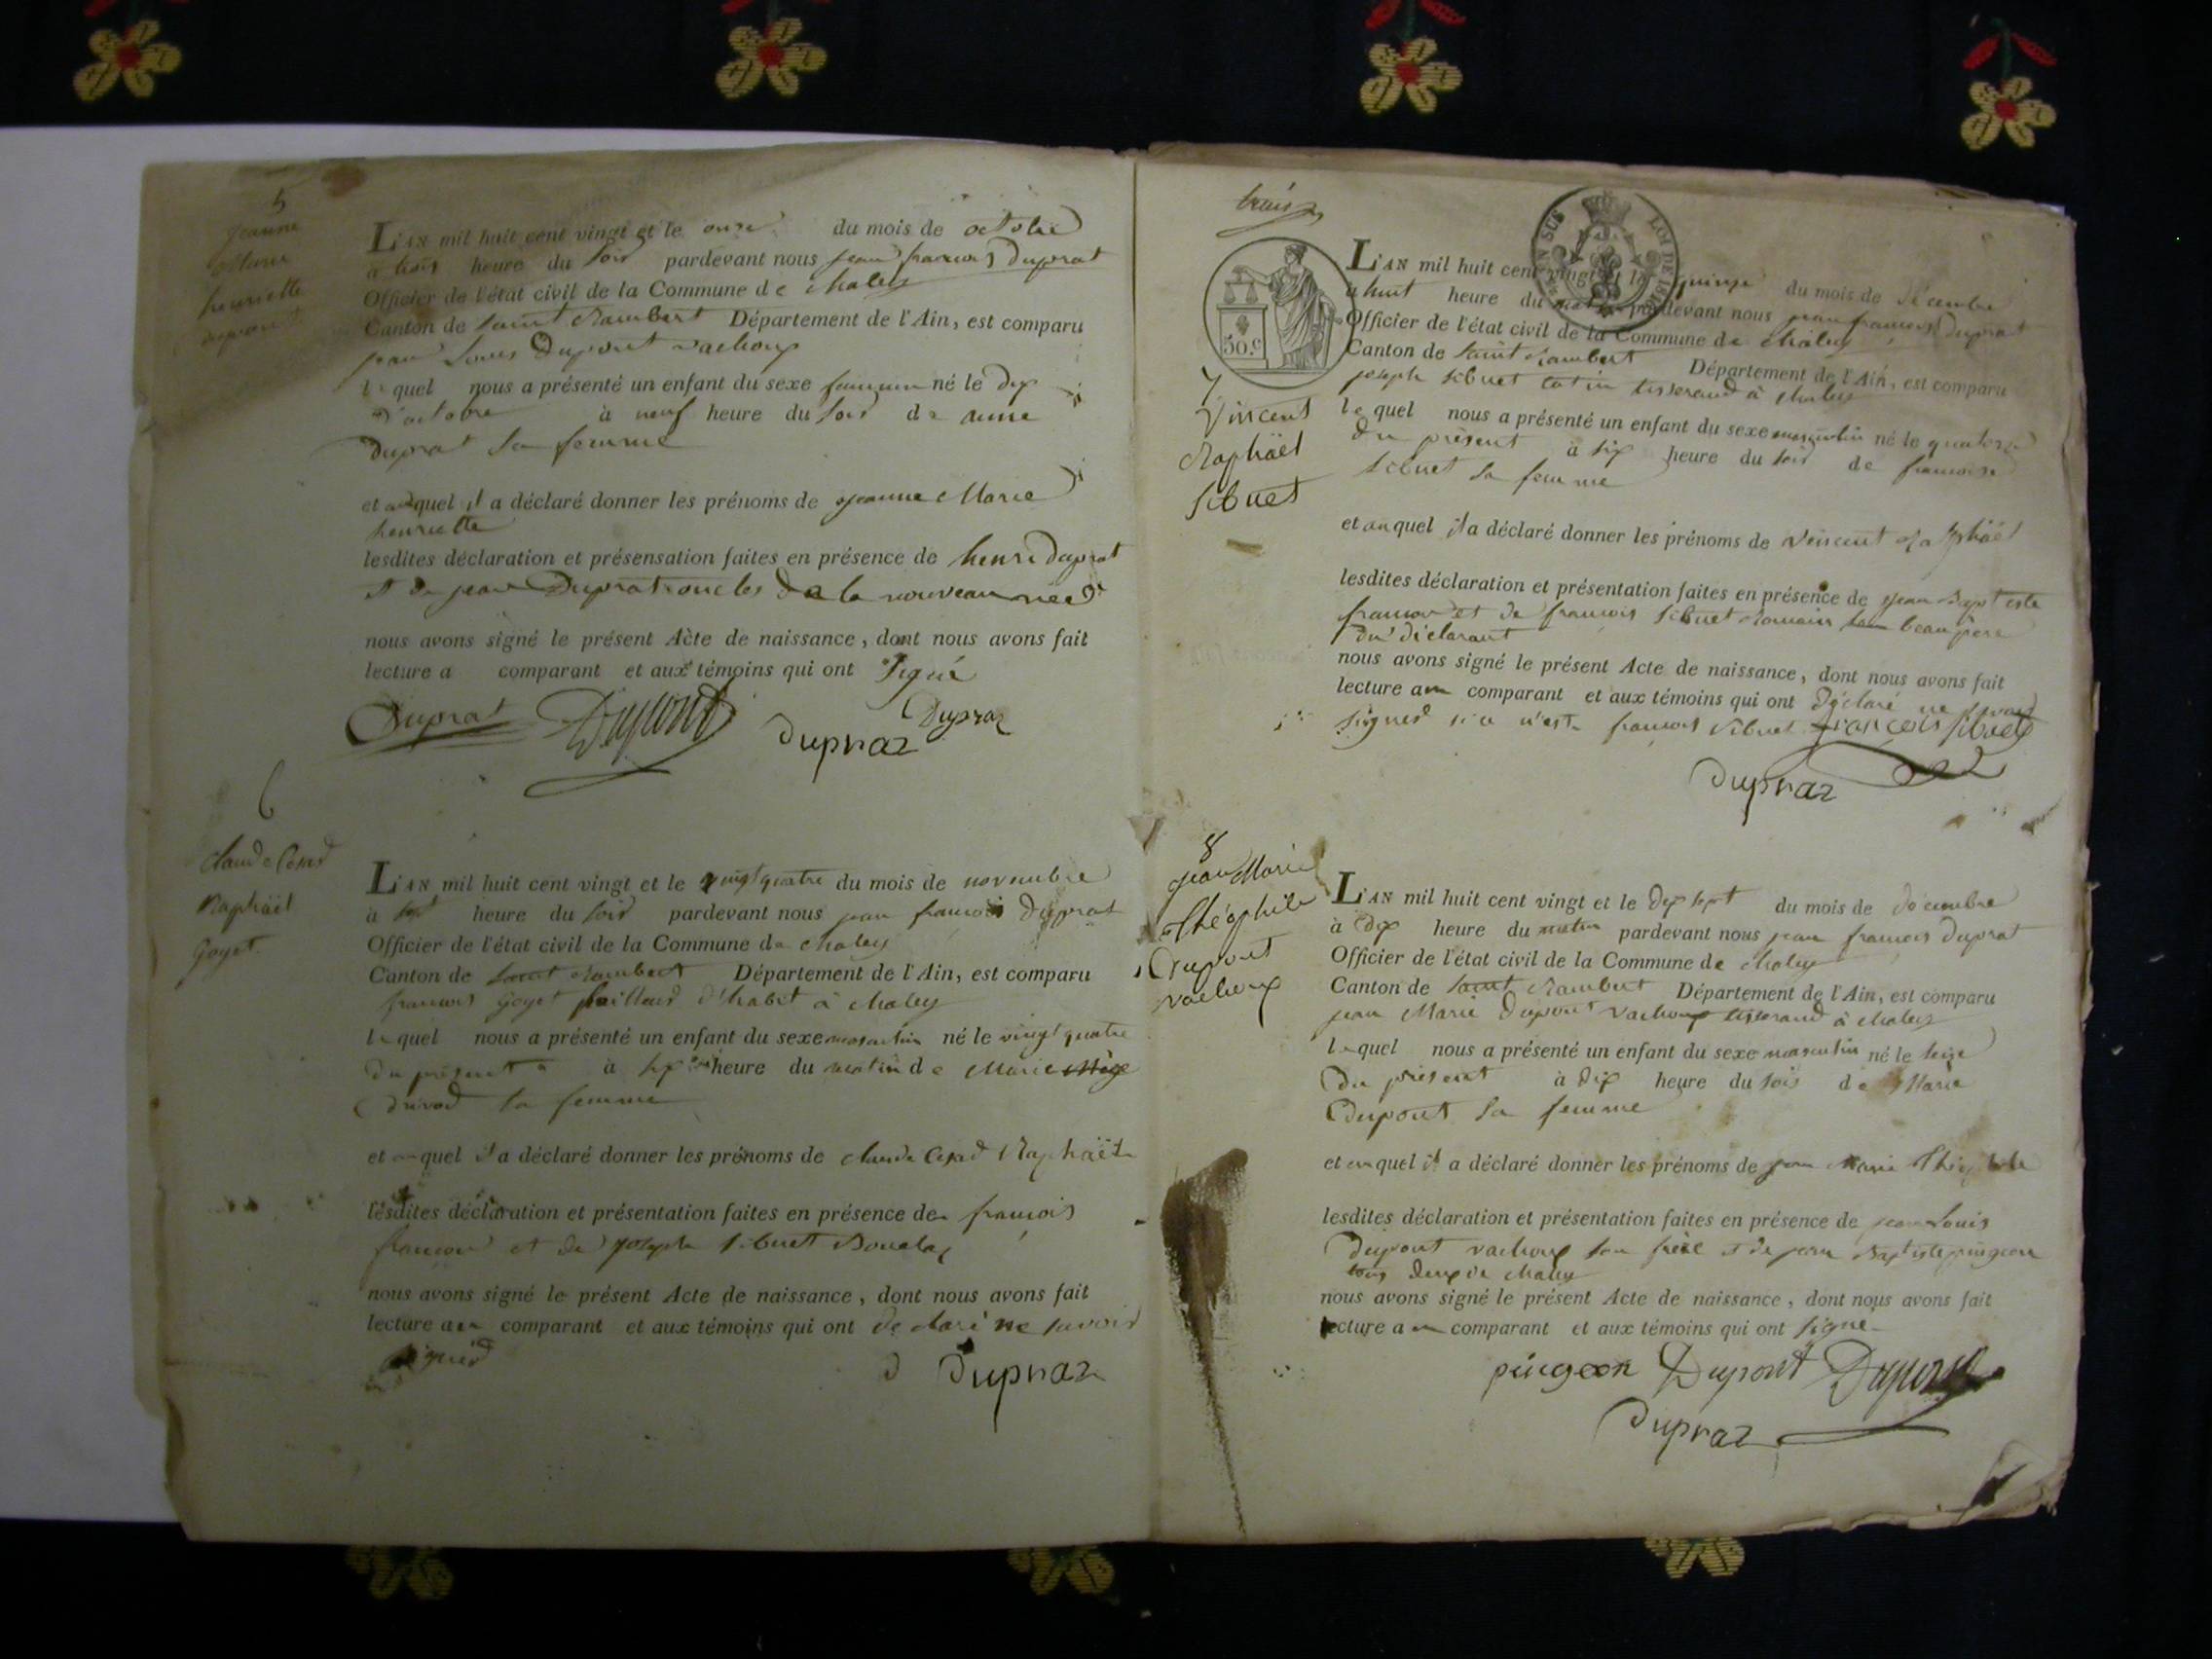 5
Jeanne
Marie
henriette
dupont
L'AN mil huit cent vingt et le onze du mois de octobre
à trois heure du soir pardevant nous jean françois Duprat
Officier de l'état civil de la Commune de chaley
Canton de saint Rambert Département de l'Ain, est comparu
jean Louis Dupont vachoux
lequel nous a présenté un enfant du sexe feminin né le dix
d'octobre à neuf heure du soir de anne
duprat sa femme
et auquel il a déclaré donner les prénoms de jeanne Marie
henriette
lesdites déclaration et présensation faites en présence de henri duprat
et de jean Duprat oncles de la nouveau née
nous avons signé le présent Acte de naissance, dont nous avons fait
lecture a comparant et aux témoins qui ont signé
Duprat Dupont Dupraz Dupraz
6
claude Cesard
Raphäel
Goyet
L'AN mil huit cent vingt et le vingt quatre du mois de novembre
à sept heure du soir pardevant nous jean françois Duprat
Officier de l'état civil de la Commune de chaley
Canton de saint Rambert Département de l'Ain, est comparu
francois Goyet tailleur d'habit à chaley
lequel nous a présenté un enfant du sexe masculin né le vingt quatre
du présent à six heure du matin de Marie
sa femme
et auquel il a déclaré donner les prénoms de claude Cesard Raphäel
lesdites déclaration et présentation faites en présence de françois
françon et de joseph sibuet
nous avons signé le présent Acte de naissance, dont nous avons fait
lecture au comparant et aux témoins qui ont declaré ne savoir
signer
Dupraz
trois
SUS LOI DE 1816
50.c
7
Vincent
Raphäel
Sibuet
L'AN mil huit cent vingt et le quinze du mois de décembre
à huit heure du matin pardevant nous jean françois Duprat
Officier de l'état civil de la Commune de chaley
Canton de saint Rambert Département de l'Ain, est comparu
joseph sibuet tisserand à chaley
lequel nous a présenté un enfant du sexe masculin né le quatorze
du présent à six heure du soir de francoise
sibuet sa femme
et auquel il a déclaré donner les prénoms de vincent Raphäel
lesdites déclaration et présentation faites en présence de jean Baptiste
françon et de françois sibuet Romain beau père
du déclarant
nous avons signé le présent Acte de naissance, dont nous avons fait
lecture au comparant et aux témoins qui ont Déclaré ne savoir
signer si ce n'est françois sibuet françois sibuet
Dupraz
8
jean Marie
Théophile
Dupont
vachoux
L'AN mil huit cent vingt et le dix sept du mois de décembre
à dix heure du matin pardevant nous jean francois Duprat
Officier de l'état civil de la Commune de chaley
Canton de saint Rambert Département de l'Ain, est comparu
jean Marie Dupont vachoux tisserand à chaley
lequel nous a présenté un enfant du sexe masculin né le seize
du présent à dix heure du soir de Marie
Dupont sa femme
et auquel il a déclaré donner les prénoms de jean Marie Théophile
lesdites déclaration et présentation faites en présence de jean Louis
Dupont vachoux son frère et de jean Baptiste pingeon
tous deux de chaley
nous avons signé le présent Acte de naissance, dont nous avons fait
lecture au comparant et aux témoins qui ont signe
pingeon Dupont Dupont
Dupraz